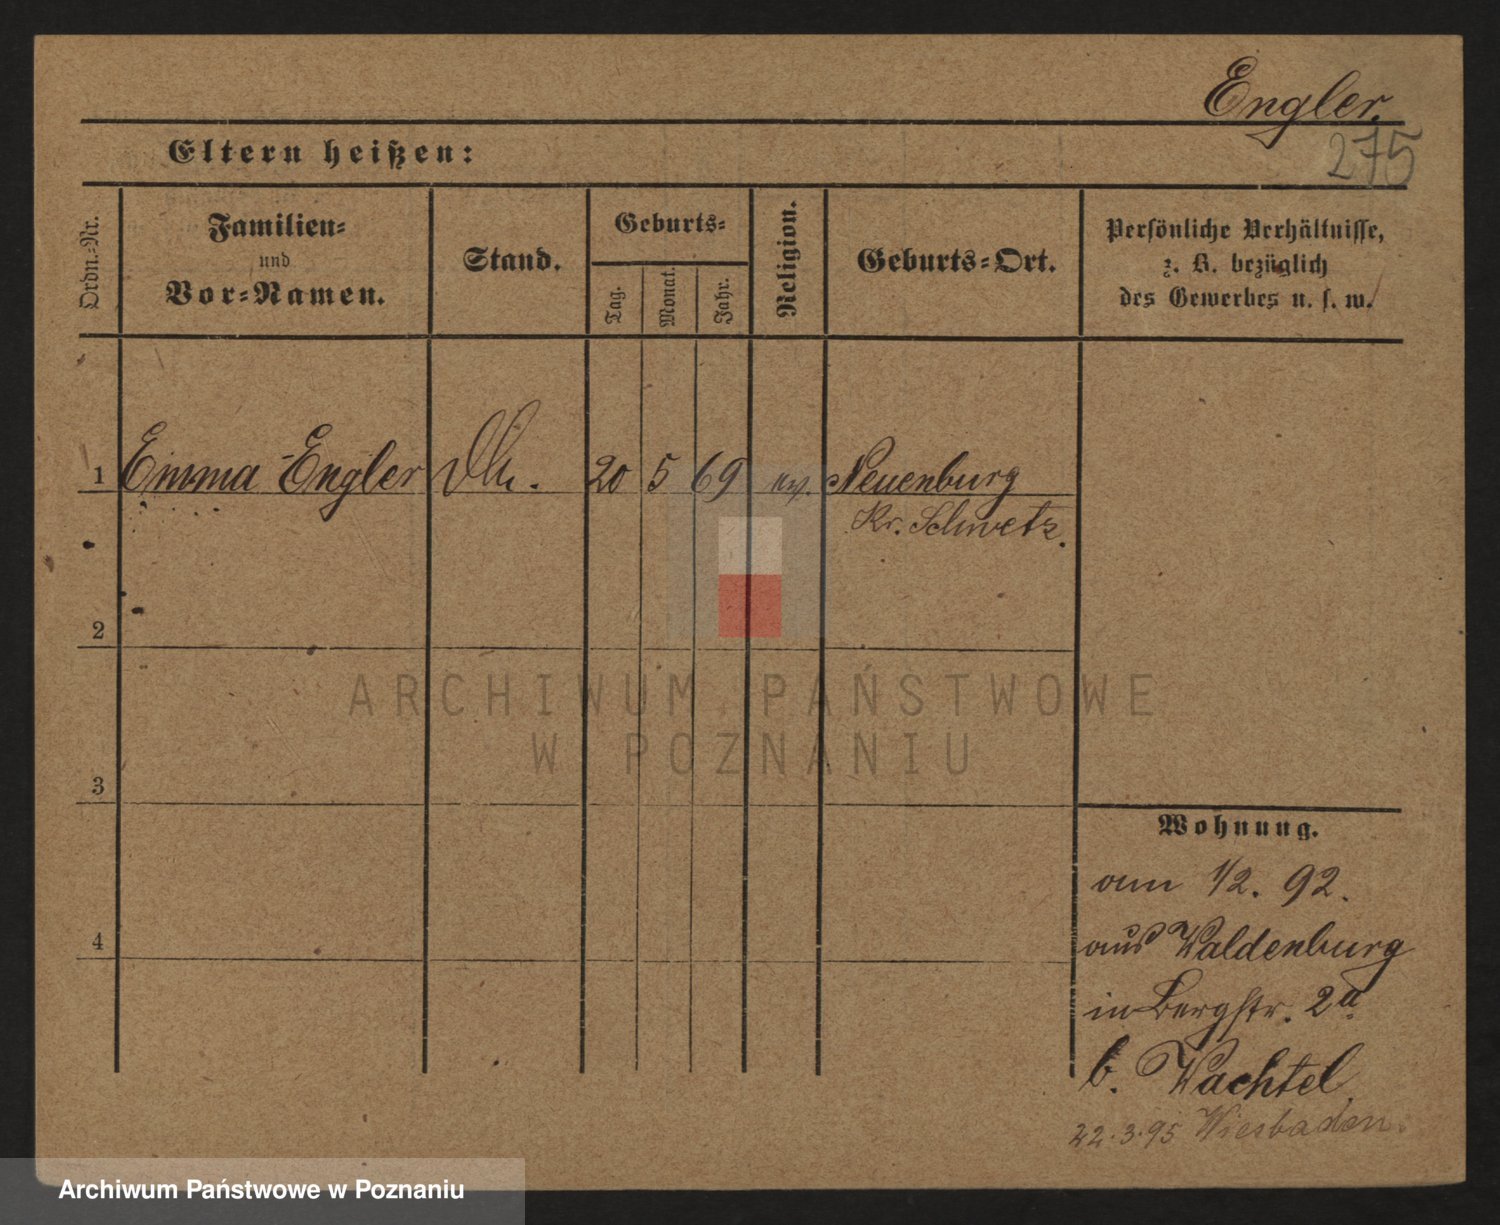 Engler.
275
Eltern heißen:
Ordn.-Nr.
Familien-
und
Vor-Namen.
Stand.
Geburts-
Tag.
Monat.
Jahr.
Religion.
Geburts-Ort.
Persönliche Verhältnisse,
z. B. bezüglich
des Gewerbes u. s. w.
1 Emma Engler 20 5 69 ev. Neuenburg
Kr. Schwetz.
2
ARCHIWUM PAŃSTWOWE
W POZNANIU
3
Wohnung.
am 1/2. 92.
4
aus Waldenburg
in Bergstr. 2a
b. Wachtel
22.3.95 Wiesbaden.
Archiwum Państwowe w Poznaniu